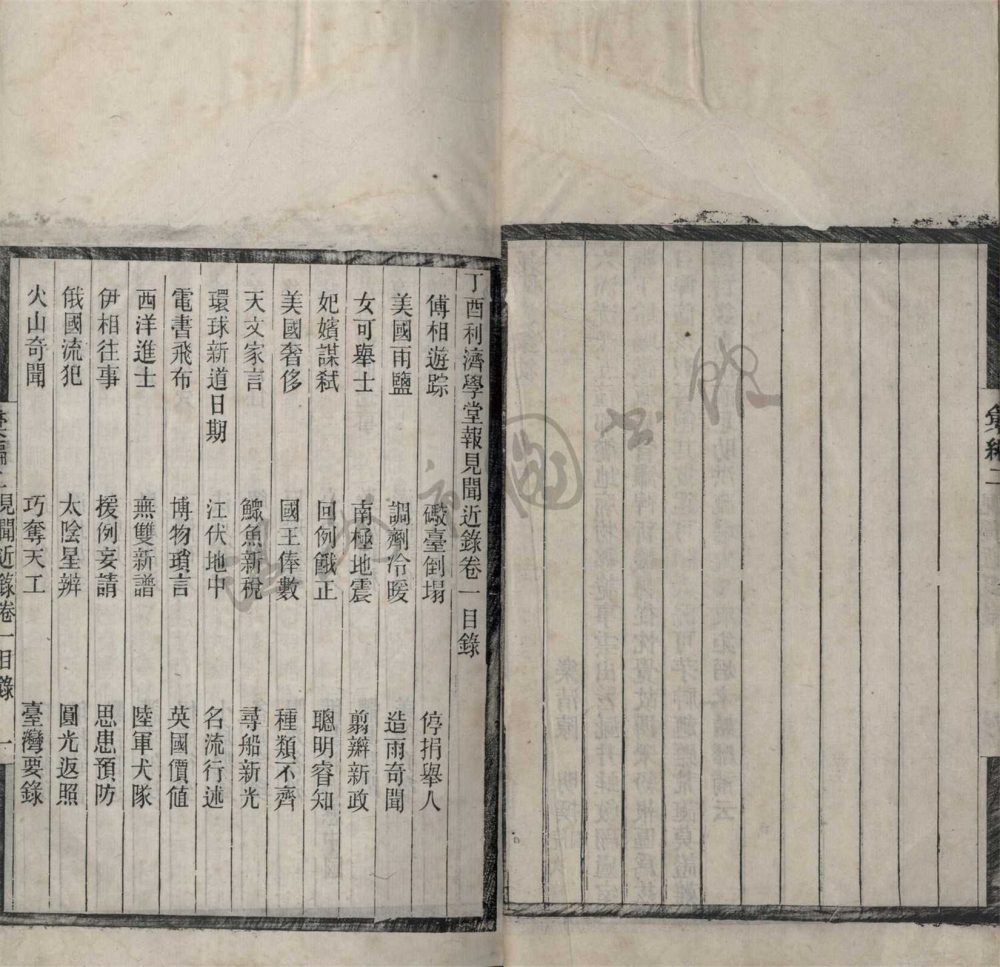 彙編二
丁酉利濟學堂報見聞近錄卷一目錄
傅相遊踪　礮臺倒塌　停捐舉人
美國雨鹽　調劑冷暖　造雨奇聞
女可舉士　南極地震　翦辮新政
妃嬪謀弒　回例餓正　聰明睿知
美國奢侈　國王俸數　種類不齊
天文家言　鱷魚新稅　尋船新光
環球新道日期　江伏地中　名流行述
電書飛布　博物瑣言　英國價値
西洋進士　無雙新譜　陸軍犬隊
伊相往事　援例妄請　思患預防
俄國流犯　太陰星辨　圓光返照
火山奇聞　巧奪天工　臺灣要錄
彙編二　見聞近錄卷一目錄　一